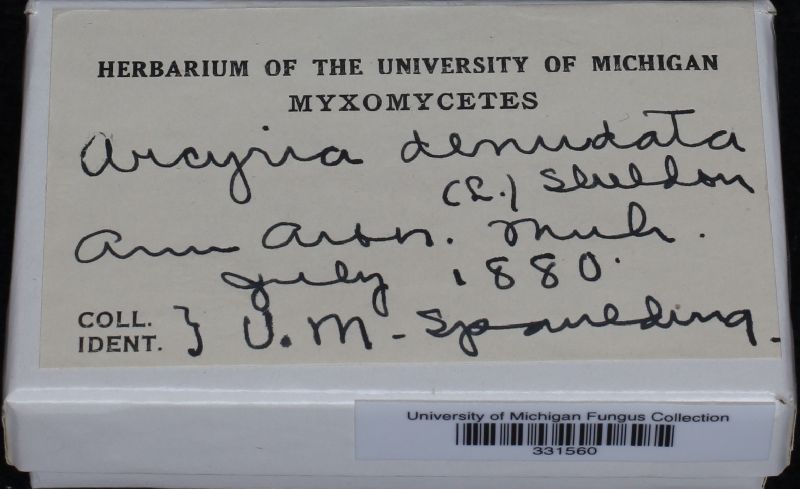 HERBARIUM OF THE UNIVERSITY OF MICHIGAN
MYXOMYCETES
Arcyria denudata
(L.) Sheldon
Ann Arbor. Mich.
July 1880.
COLL.
IDENT. } V. M. Spaulding.
University of Michigan Fungus Collection
331560